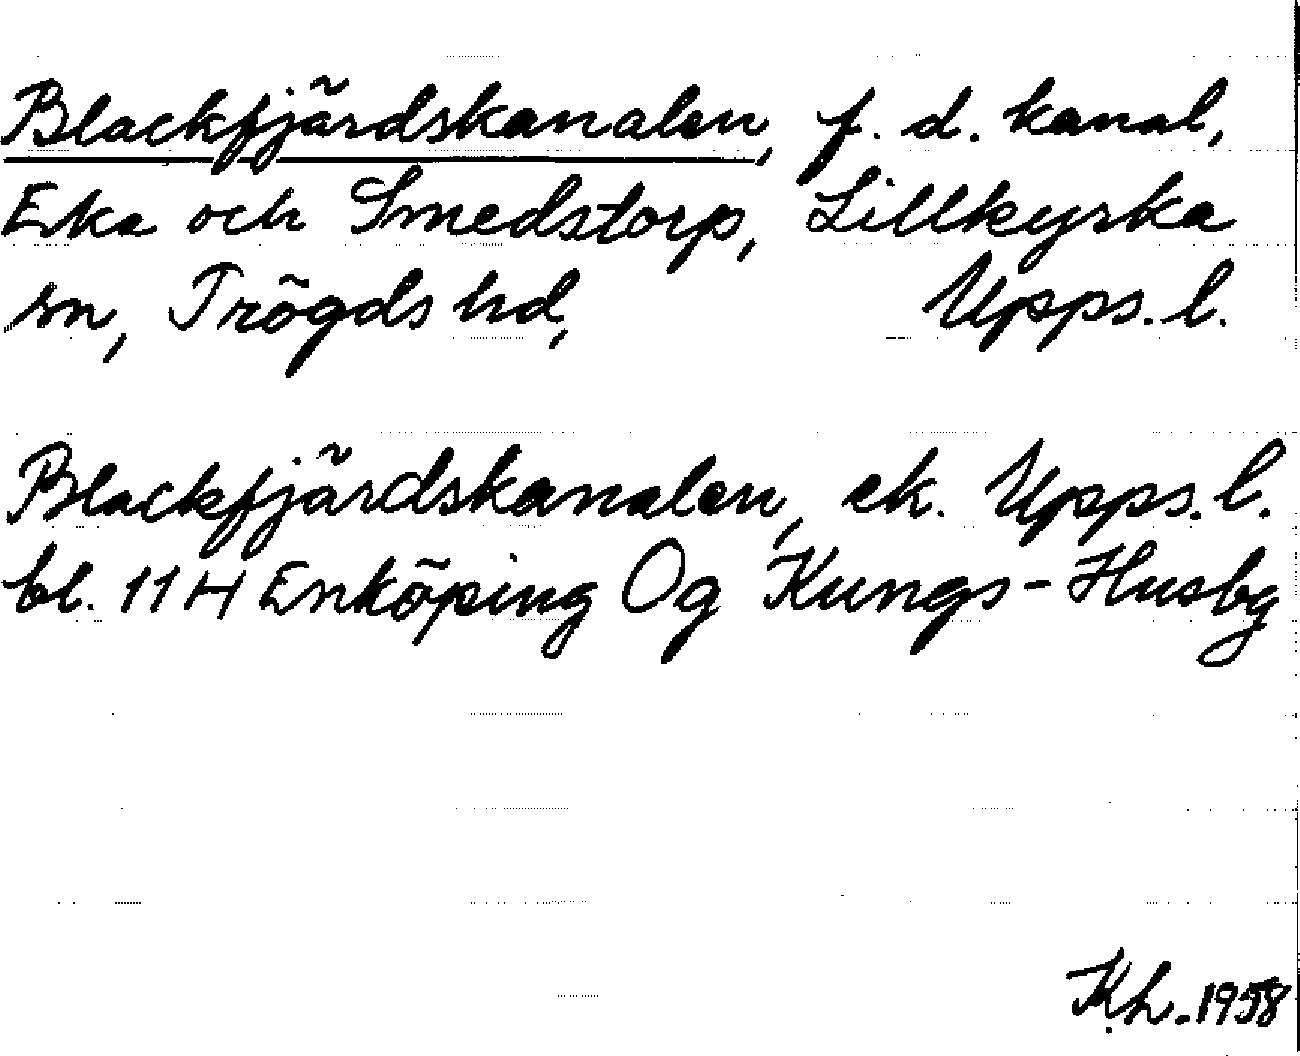 Blackfjärdskanalen, f. d. kanal,
Eka och Smedstorp, Lillkyrka
sn, Trögds hd, Upps. l.
Blackfjärdskanalen, ek. Upps. l.
bl. 11 H Enköping Og Kungs-Husby
K.L. 1958